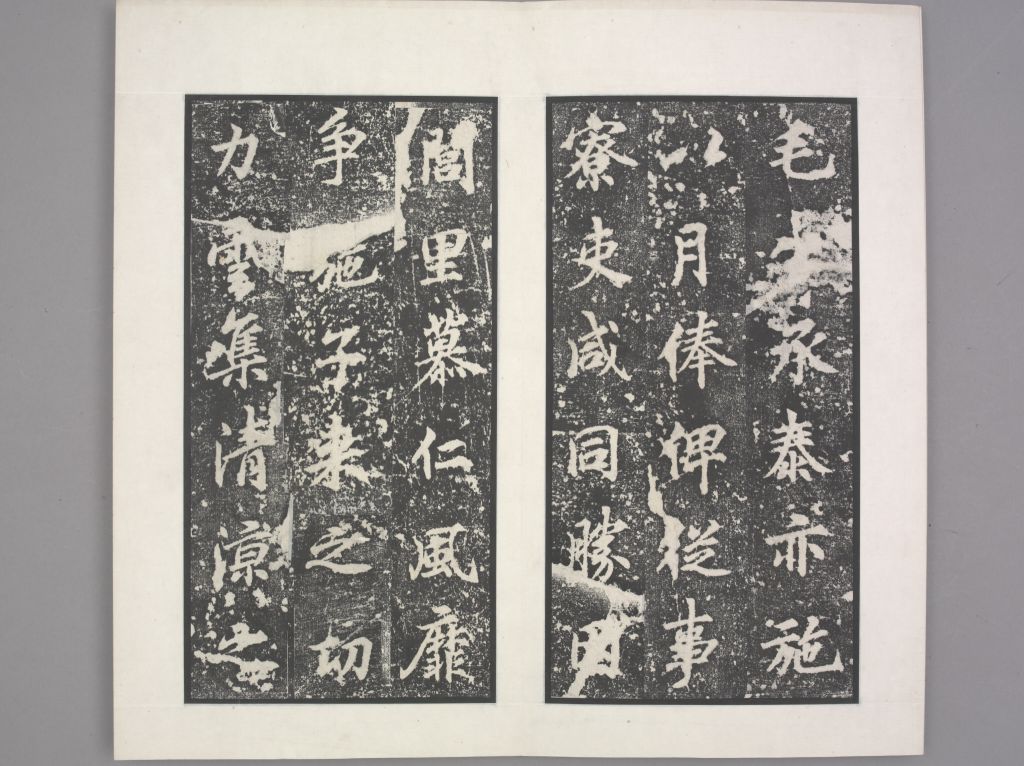 毛承泰亦施
以月俸俾從事
寮吏咸同勝因
閭里慕仁風靡
爭施子來之功
力雲集清涼之